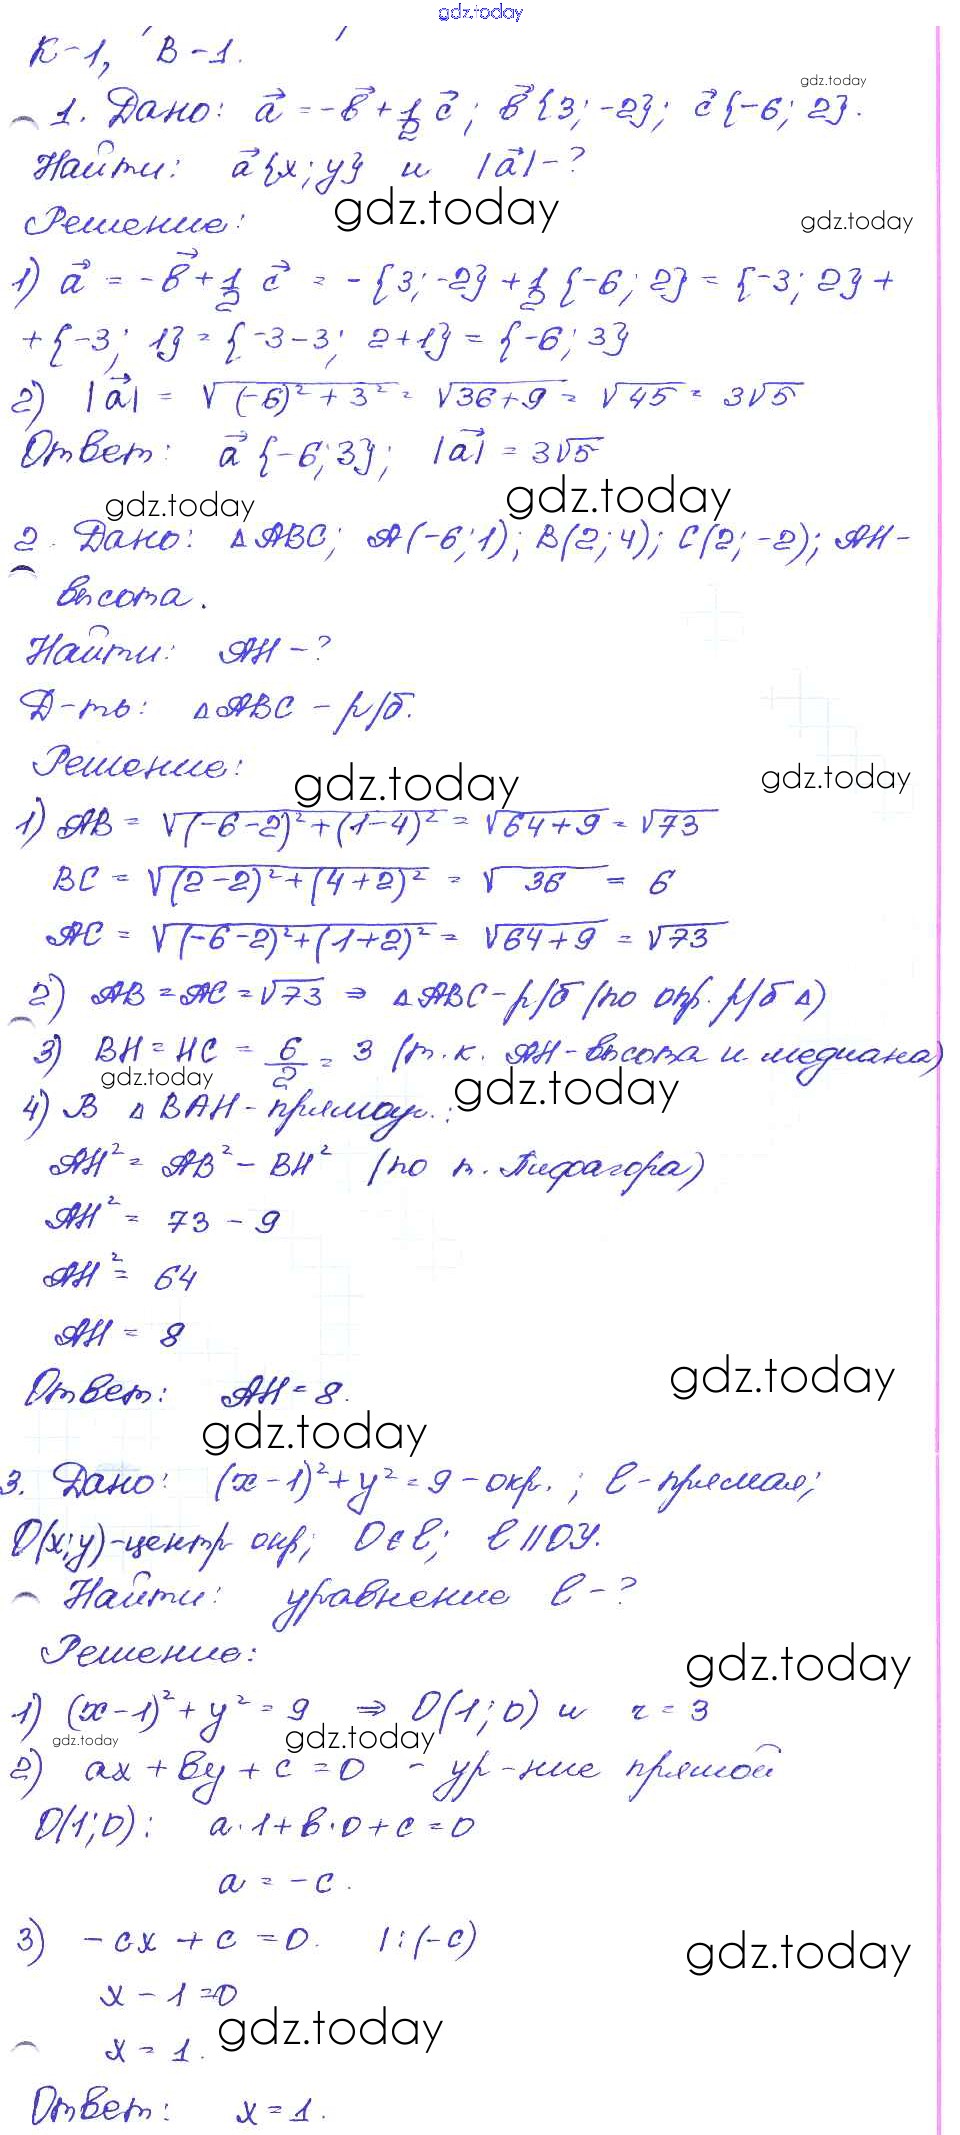 gdz.today
К-1, В-1.
gdz.today
1. Дано: a⃗ = -b⃗ + 1/2 c⃗; b⃗{3; -2}; c⃗{-6; 2}.
Найти: a⃗{x; y} и |a⃗| - ?
gdz.today
gdz.today
Решение:
1) a⃗ = -b⃗ + 1/2 c⃗ = -{3; -2} + 1/2 {-6; 2} = {-3; 2} +
+ {-3; 1} = {-3-3; 2+1} = {-6; 3}
2) |a⃗| = √(-6)² + 3² = √36+9 = √45 = 3√5
Ответ: a⃗ {-6; 3}; |a⃗| = 3√5
gdz.today
gdz.today
2. Дано: △ABC; A(-6; 1); B(2; 4); C(2; -2); AH -
высота.
Найти: AH - ?
Д-ть: △ABC - р/б.
Решение:
gdz.today
gdz.today
1) AB = √(-6-2)²+(1-4)² = √64+9 = √73
BC = √(2-2)²+(4+2)² = √36 = 6
AC = √(-6-2)²+(1+2)² = √64+9 = √73
2) AB = AC = √73 ⇒ △ABC - р/б (по опр. р/б △)
3) BH = HC = 6/2 = 3 (т.к. AH - высота и медиана)
gdz.today
gdz.today
4) В △BAH - прямоуг.:
AH² = AB² - BH² (по т. Пифагора)
AH² = 73 - 9
AH² = 64
AH = 8
gdz.today
Ответ: AH = 8.
gdz.today
3. Дано: (x-1)² + y² = 9 - окр.; l - прямая;
O(x; y) - центр окр; O ∈ l; l || OY.
Найти: уравнение l - ?
Решение:
gdz.today
1) (x-1)² + y² = 9 ⇒ O(1; 0) и r = 3
gdz.today
gdz.today
2) ax + by + c = 0 - ур-ние прямой
O(1; 0): a·1 + b·0 + c = 0
a = -c.
3) -cx + c = 0. |:(-c)
gdz.today
x - 1 = 0
gdz.today
x = 1.
Ответ: x = 1.